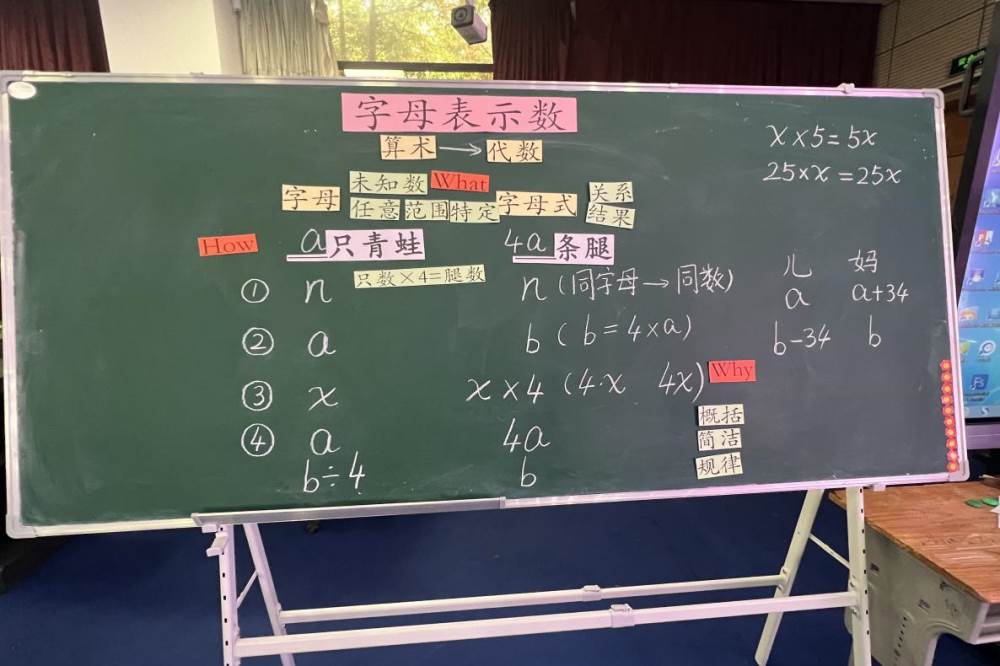 字母表示数
算术→代数
x×5=5x
25×x=25x
字母 未知数 What 字母式 关系
任意 范围 特定 结果
How a只青蛙 4a条腿
只数×4=腿数
儿 妈
① n n(同字母→同数) a a+34
② a b(b=4×a) b-34 b
③ x x×4(4·x 4x) Why
概括
④ a 4a 简洁
b÷4 b 规律